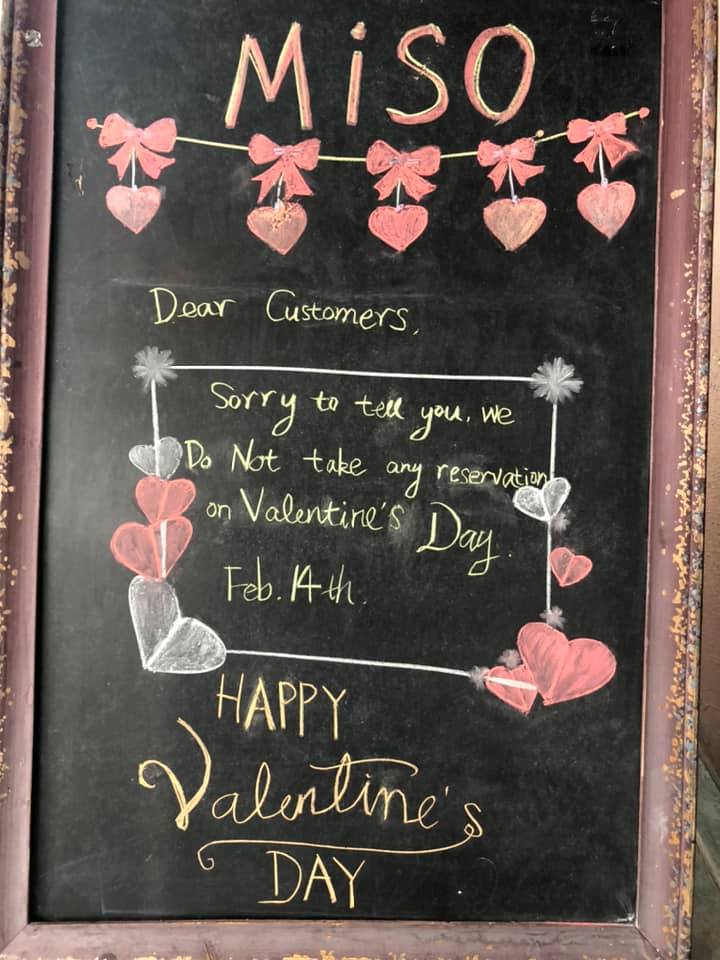 MiSO
Dear Customers,
Sorry to tell you, we
Do Not take any reservation
on Valentine's Day.
Feb. 14th.
HAPPY
Valentine's
DAY